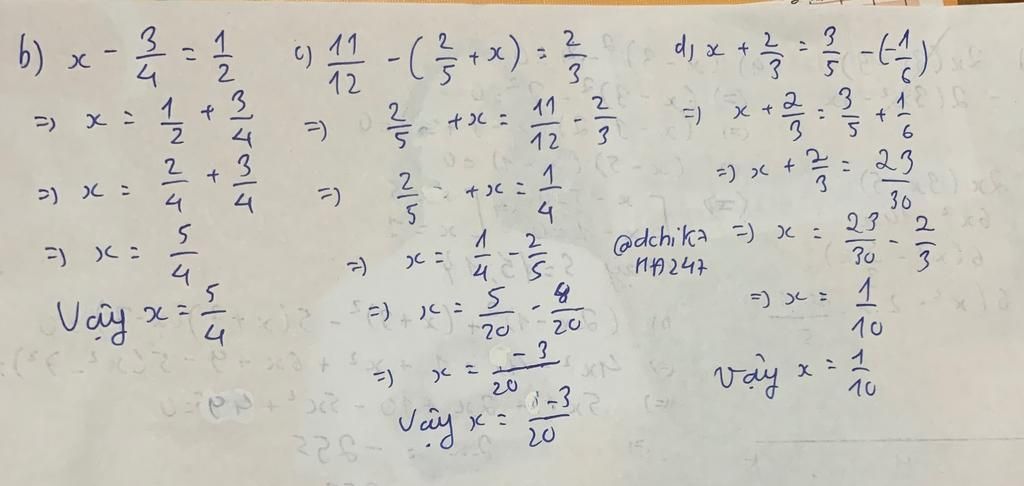 b) x - 3/4 = 1/2
=> x = 1/2 + 3/4
=> x = 2/4 + 3/4
=> x = 5/4
Vậy x = 5/4
c) 11/12 - (2/5 + x) = 2/3
=> 2/5 + x = 11/12 - 2/3
=> 2/5 + x = 1/4
=> x = 1/4 - 2/5
=> x = 5/20 - 8/20
=> x = -3/20
Vậy x = -3/20
d) x + 2/3 = 3/5 - (-1/6)
=> x + 2/3 = 3/5 + 1/6
=> x + 2/3 = 23/30
=> x = 23/30 - 2/3
=> x = 1/10
Vậy x = 1/10